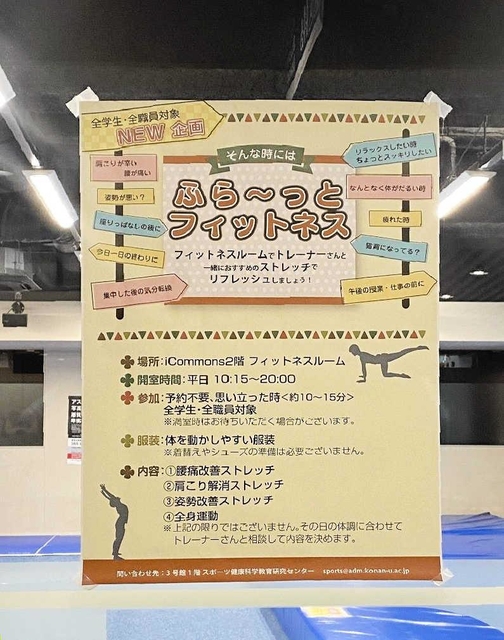 全学生・全職員対象
NEW 企画
そんな時には
肩こりが辛い
腰が痛い
姿勢が悪い？
座りっぱなしの後に
今日一日の終わりに
集中した後の気分転換
リラックスしたい時
ちょっとスッキリしたい
なんとなく体がだるい時
疲れた時
猫背になってる？
午後の授業・仕事の前に
ふら〜っと
フィットネス
フィットネスルームでトレーナーさんと
一緒におすすめのストレッチで
リフレッシュしましょう！
場所:iCommons2階 フィットネスルーム
開室時間:平日 10:15〜20:00
参加:予約不要、思い立った時<約10〜15分>
全学生・全職員対象
※満室時はお待ちいただく場合がございます。
服装:体を動かしやすい服装
※着替えやシューズの準備は必要ございません。
内容:①腰痛改善ストレッチ
②肩こり解消ストレッチ
③姿勢改善ストレッチ
④全身運動
※上記の限りではございません。その日の体調に合わせて
トレーナーさんと相談して内容を決めます。
問い合わせ先：3号館1階 スポーツ健康科学教育研究センター sports@adm.konan-u.ac.jp